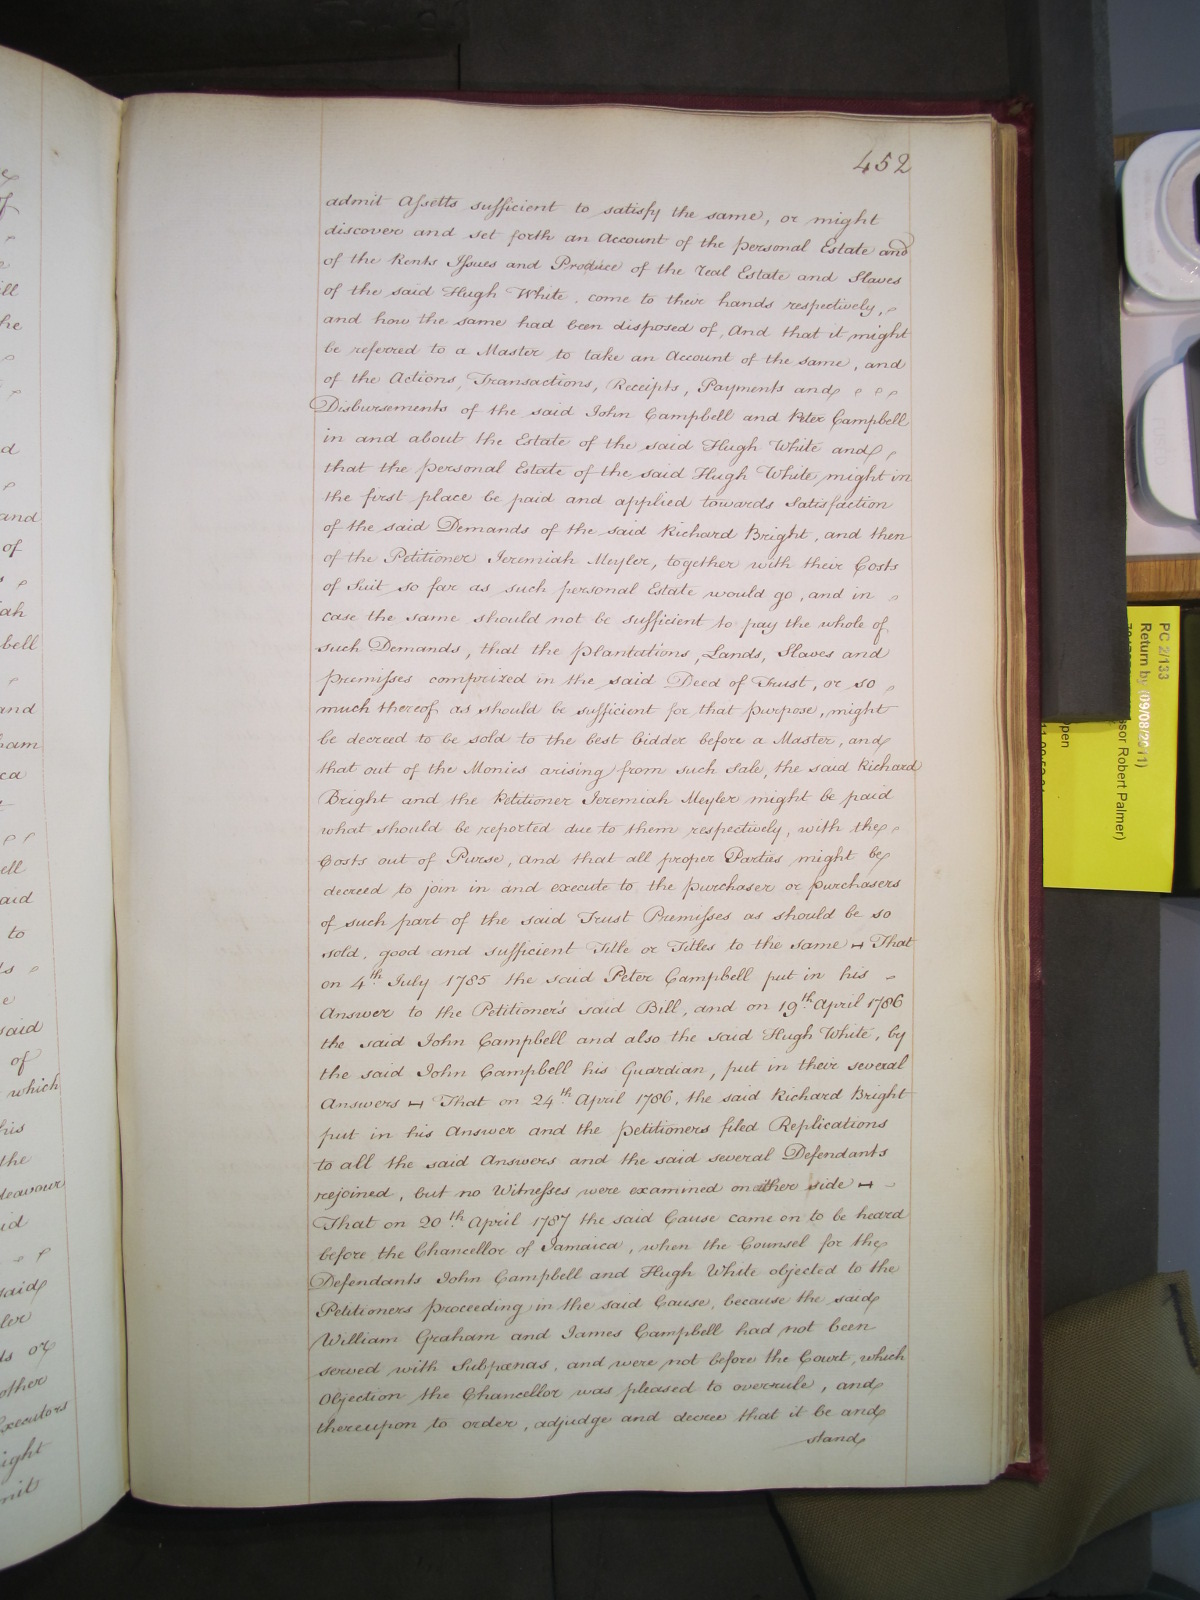 452
admit Assetts sufficient to satisfy the same, or might
discover and set forth an Account of the personal Estate and
of the Rents Issues and Produce of the real Estate and Slaves
of the said Hugh White, come to their hands respectively,
and how the same had been disposed of, And that it might
be referred to a Master to take an Account of the same, and
of the Actions, Transactions, Receipts, Payments and
Disbursements of the said John Campbell and Peter Campbell
in and about the Estate of the said Hugh White and,
that the personal Estate of the said Hugh White might in
the first place be paid and applied towards Satisfaction
of the said Demands of the said Richard Bright, and then
of the Petitioner Jeremiah Meyler, together with their Costs
of Suit so far as such personal Estate would go, and in
case the same should not be sufficient to pay the whole of
such Demands, that the plantations, Lands, Slaves and
premisses comprized in the said Deed of Trust, or so
much thereof as should be sufficient for that purpose, might
be decreed to be sold to the best bidder before a Master, and
that out of the Monies arising from such Sale, the said Richard
Bright and the Petitioner Jeremiah Meyler might be paid
what should be reported due to them respectively, with the
Costs out of Purse, and that all proper Parties might be
decreed to join in and execute to the purchaser or purchasers
of such part of the said Trust Premisses as should be so
sold, good and sufficient Title or Titles to the same ⊢ That
on 4th July 1785 the said Peter Campbell put in his
Answer to the Petitioner's said Bill, and on 19th April 1786
the said John Campbell and also the said Hugh White, by
the said John Campbell his Guardian, put in their several
Answers ⊢ That on 24th April 1786, the said Richard Bright
put in his Answer and the petitioners filed Replications
to all the said Answers and the said several Defendants
rejoined, but no Witnesses were examined on either side ⊢
That on 20th April 1787 the said Cause came on to be heard
before the Chancellor of Jamaica, when the Counsel for the
Defendants John Campbell and Hugh White objected to the
Petitioners proceeding in the said Cause, because the said
William Graham and James Campbell had not been
served with Subpœnas, and were not before the Court, which
Objection the Chancellor was pleased to overrule, and
thereupon to order, adjudge and decree that it be and
stand
PC 2/133
Return by (09/08/2011)
ssor Robert Palmer)